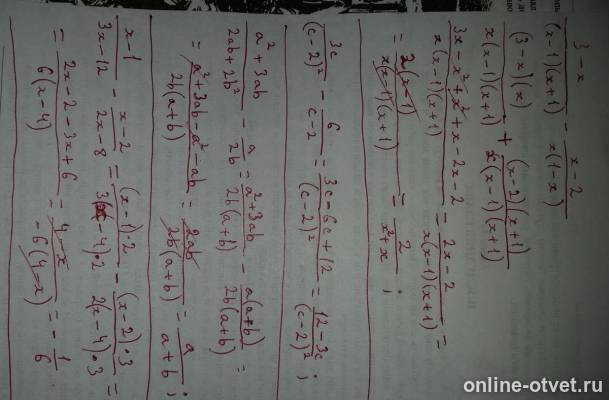 (3-x)/((x-1)(x+1)) - (x-2)/(x(1-x))
((3-x)(x))/(x(x-1)(x+1)) + ((x-2)(x+1))/(x(x-1)(x+1))
(3x-x²+x²+x-2x-2)/(x(x-1)(x+1)) = (2x-2)/(x(x-1)(x+1)) =
= (2(x-1))/(x(x-1)(x+1)) = 2/(x²+x) ;
3c/(c-2)² - 6/(c-2) = (3c-6c+12)/(c-2)² = (12-3c)/(c-2)² ;
(a²+3ab)/(2ab+2b²) - a/2b = (a²+3ab)/(2b(a+b)) - (a(a+b))/(2b(a+b)) =
= (a²+3ab-a²-ab)/(2b(a+b)) = 2ab/(2b(a+b)) = a/(a+b) ;
(x-1)/(3x-12) - (x-2)/(2x-8) = ((x-1)·2)/(3(x-4)·2) - ((x-2)·3)/(2(x-4)·3) =
= (2x-2-3x+6)/(6(x-4)) = (4-x)/(-6(4-x)) = -1/6 .
online-otvet.ru